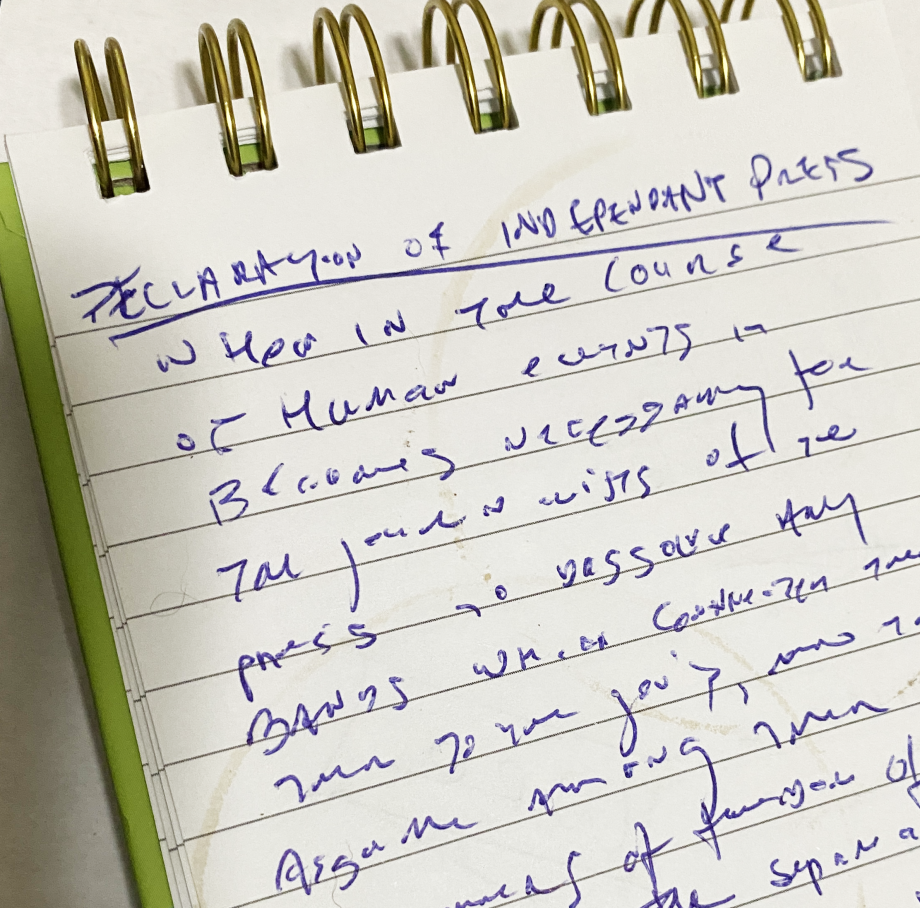 DECLARATION OF INDEPENDANT PRESS
WHEN IN THE COURSE
OF HUMAN EVENTS IT
BECOMES NECESSARY FOR
THE JOURNALISTS OF THE
PRESS TO DISSOLVE ANY
BANDS WHICH CONNECTED THEM
THEM TO THE GOV'T, AND TO
ASSUME AMONG THEM
OF FREEDOM OF
THE SEPARA